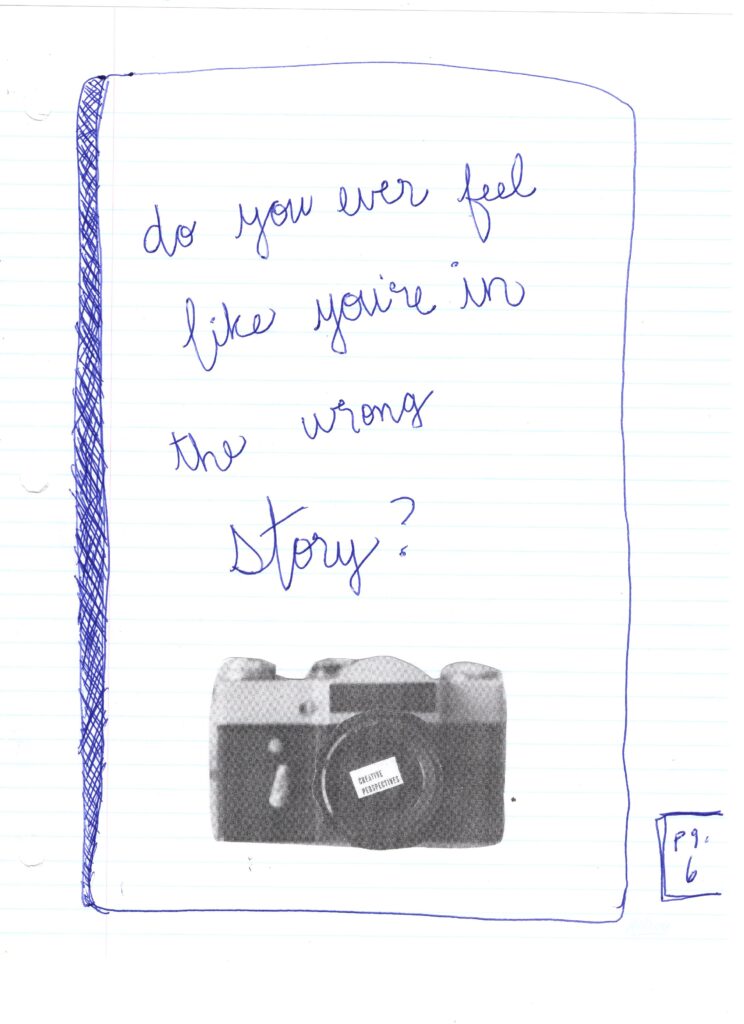 do you ever feel
like you're in
the wrong
story?
CREATIVE
PERSPECTIVES
pg.
6